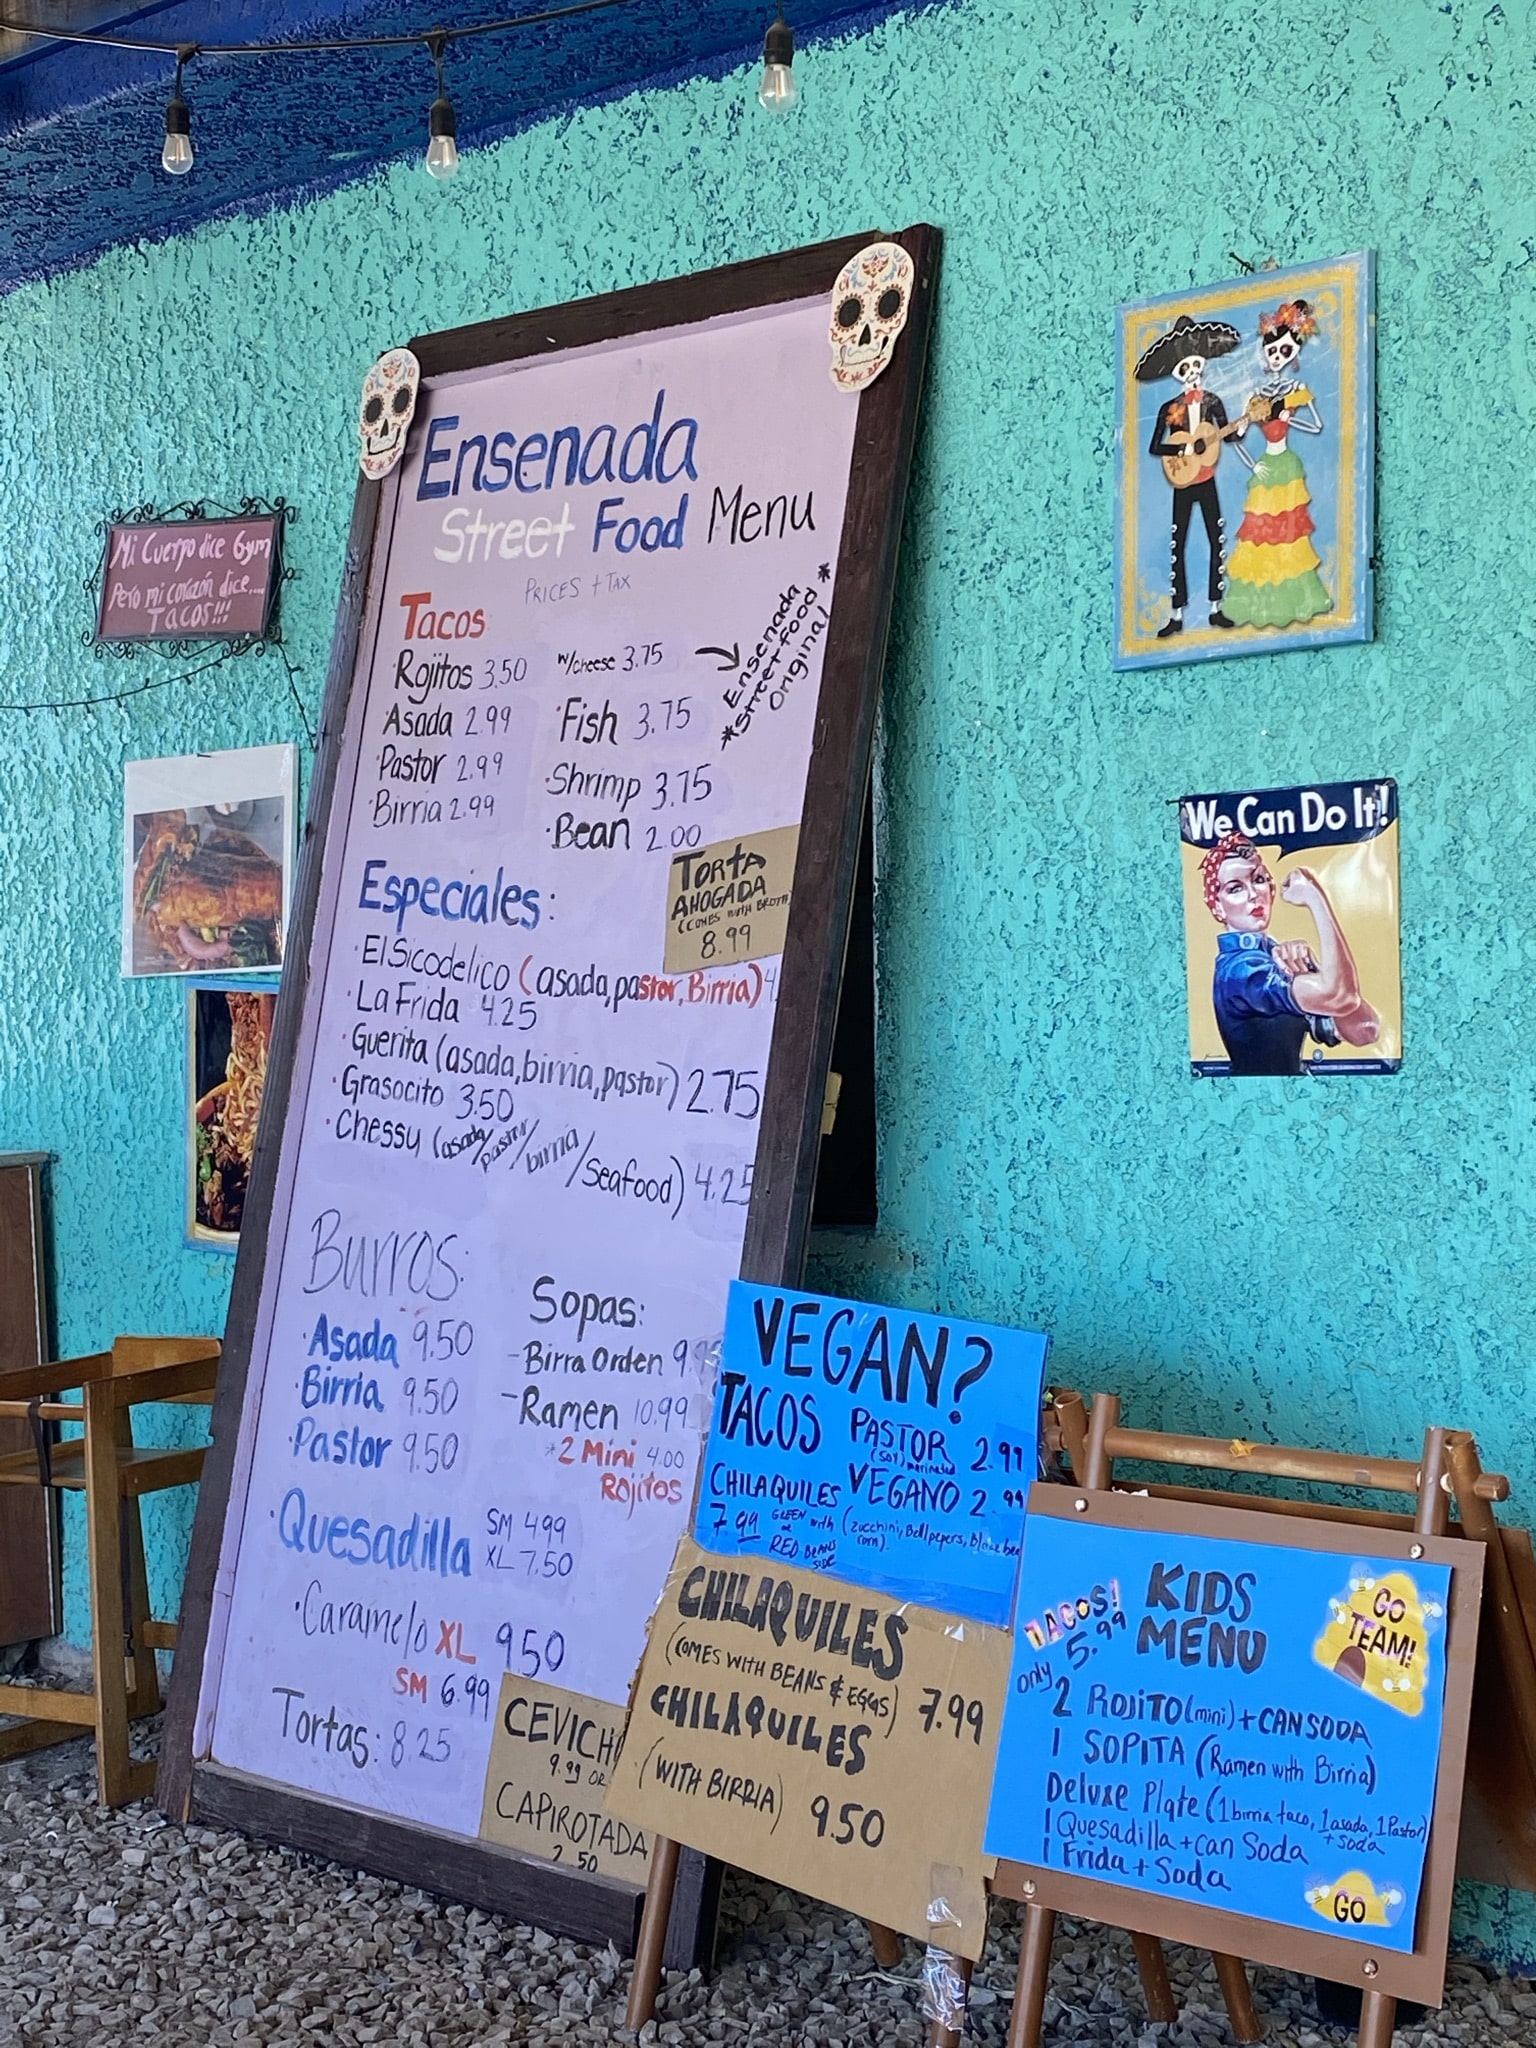 Mi Cuerpo dice Gym
Pero mi corazón dice....
TACOS!!!
Ensenada
Street Food Menu
PRICES + TAX
Tacos
·Rojitos 3.50 w/cheese 3.75
*Ensenada
*Street food*
Original
·Asada 2.99
·Fish 3.75
·Pastor 2.99
·Shrimp 3.75
·Birria 2.99
·Bean 2.00
TORTA
AHOGADA
(COMES WITH BROTH)
8.99
Especiales:
·El Sicodelico (asada, pastor, Birria) 4.
·La Frida 4.25
·Guerita (asada, birria, pastor) 2.75
·Grasocito 3.50
·Chessu (asada/pastor/birria/Seafood) 4.25
Burros:
·Asada 9.50
·Birria 9.50
·Pastor 9.50
Sopas:
-Birra Orden 9.
-Ramen 10.99
*2 Mini 4.00
Rojitos
·Quesadilla SM 4.99
XL 7.50
·Caramelo XL 9.50
SM 6.99
Tortas: 8.25
CEVICH
9.99 OR
CAPIROTADA
2.50
VEGAN?
TACOS PASTOR 2.99
(SOY) marinated
VEGANO 2.99
(zucchini, Bellpepers, corn).
CHILAQUILES
7.99 GREEN with
or
RED BEANS
side
CHILAQUILES
(COMES WITH BEANS & EGGS) 7.99
CHILAQUILES
(WITH BIRRIA) 9.50
TACOS!
only 5.99
KIDS
MENU
GO
TEAM!
2 ROJITO (mini) + CAN SODA
1 SOPITA (Ramen with Birria)
Deluxe Plate (1 birria taco, 1 asada, 1 Pastor)
+ soda
1 Quesadilla + can Soda
1 Frida + Soda
GO
We Can Do It!